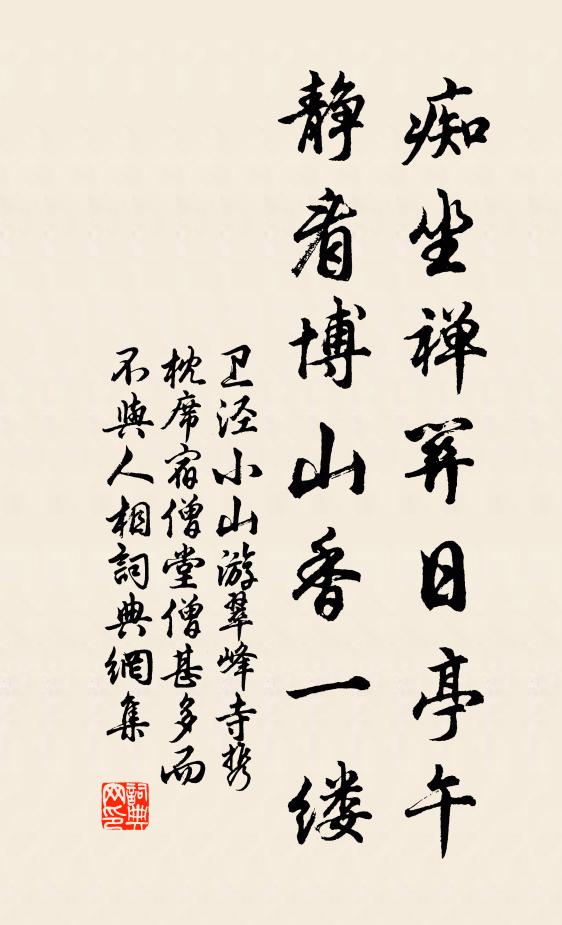 痴坐禅关日亭午
静看博山香一缕
卫泾小山游翠峰寺携
枕席宿僧堂僧甚多而
不與人相詞典網集
詞典网印